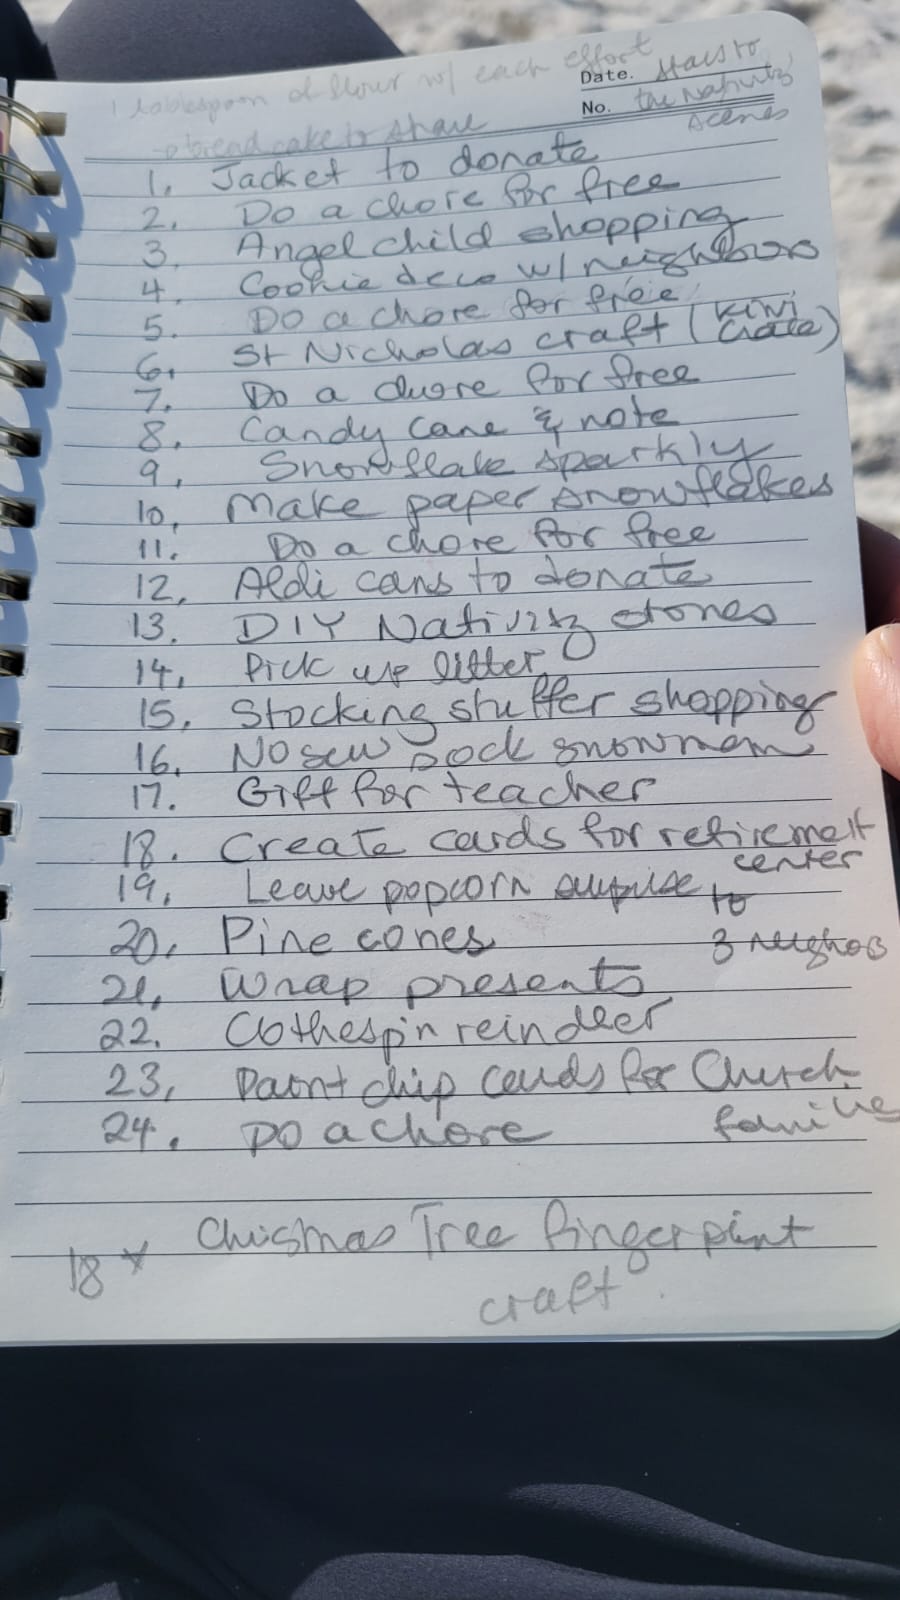 1 tablespoon of flour w/ each effort
Date. Hay to
No. the Nativity
scenes
→ bread cake to share
1. Jacket to donate
2. Do a chore for free
3. Angel child shopping
4. Cookie deco w/ neighbors
5. Do a chore for free
6. St Nicholas craft (Kiwi
Crate)
7. Do a chore for free
8. Candy cane & note
9. Snowflake sparkly
10. Make paper snowflakes
11. Do a chore for free
12. Aldi cans to donate
13. DIY Nativity stones
14. Pick up litter
15. Stocking stuffer shopping
16. No sew sock snowman
17. Gift for teacher
18. Create cards for retirement
center
19. Leave popcorn surprise to
3 neighbors
20. Pine cones
21. Wrap presents
22. Clothespin reindeer
23. Paint chip cards for Church
families
24. Do a chore
18 * Christmas Tree fingerprint
craft.